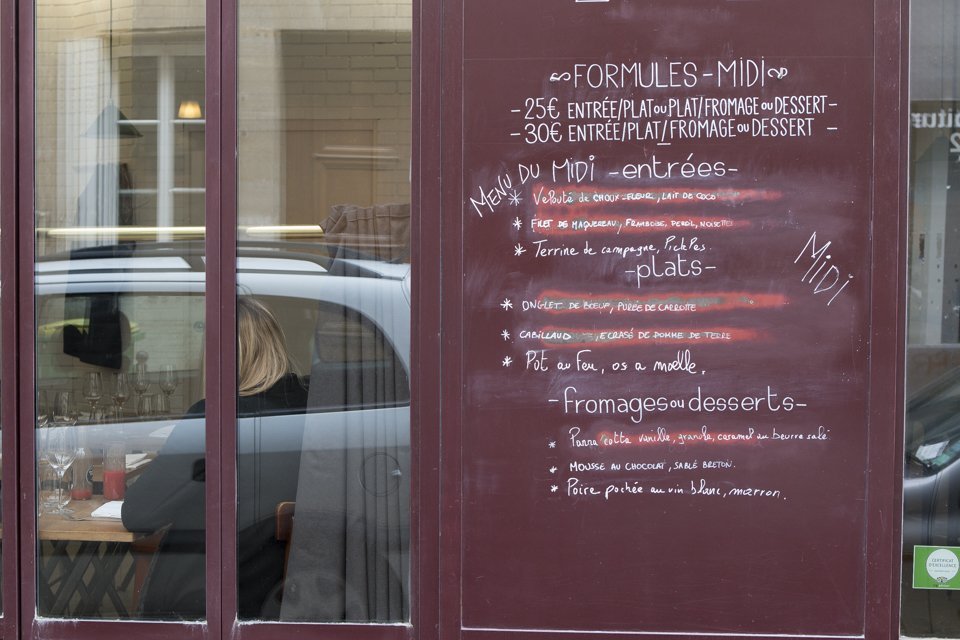 FORMULES-MIDI
-25€ ENTRÉE/PLAT OU PLAT/FROMAGE OU DESSERT-
-30€ ENTRÉE/PLAT/FROMAGE OU DESSERT -
MENU DU MIDI -entrées-
* Velouté de CHOUX-FLEUR, LAIT DE COCO
* FILET DE MAQUEREAU, FRAMBOISE, PERSIL, NOISETTES
* Terrine de campagne, Pickles.
-plats-
MIDI
* ONGLET DE BOEUF, PURÉE DE CAROTTE
* CABILLAUD, ECRASÉ DE POMME DE TERRE
* Pot au Feu, os a moelle.
-fromages ou desserts-
* Panna cotta vanille, granola, caramel au beurre salé.
* MOUSSE AU CHOCOLAT, SABLÉ BRETON.
* Poire pochée au vin blanc, marron.
CERTIFICAT
D'EXCELLENCE